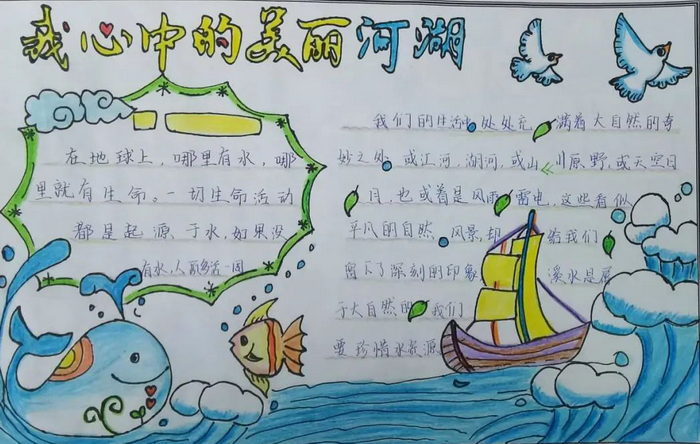 我心中的美丽河湖
在地球上，哪里有水，哪
里就有生命。一切生命活动
都是起源于水，如果没
有水，人可能活一周
我们的生活中处处充满着大自然的奇
妙之处，或江河，湖河，或山川原野，或天空日
月，也或着是风雨雷电，这些看似
平凡的自然风景，却给我们
留下了深刻的印象溪水是属
于大自然的我们
要珍惜水资源